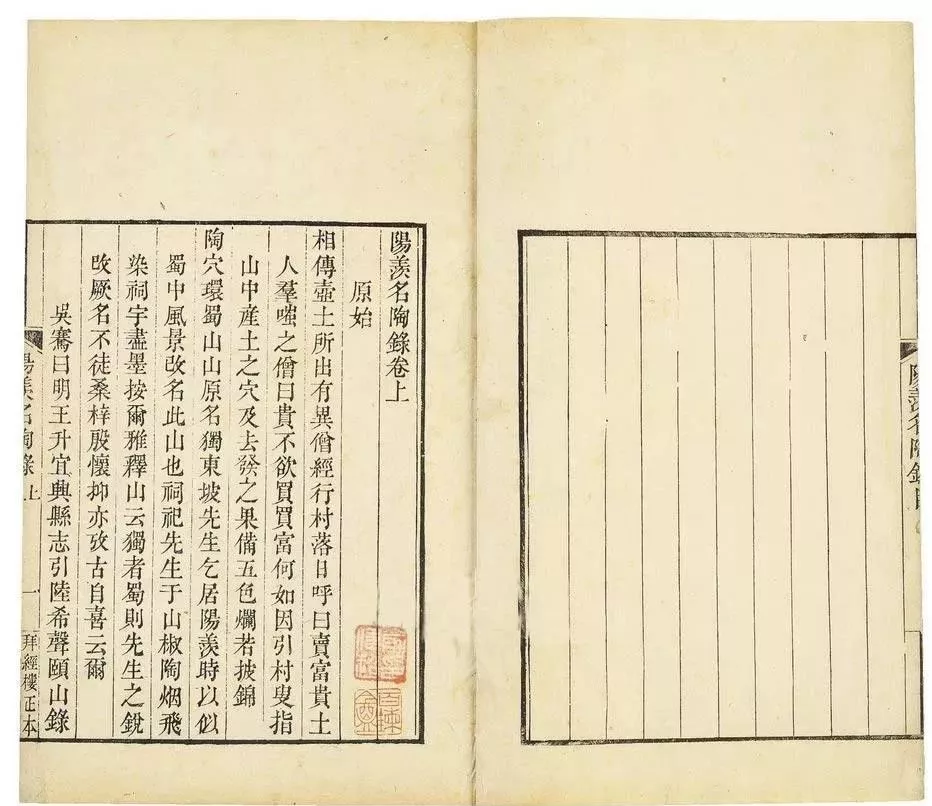 陽羨名陶錄
陽羨名陶錄卷上
原始
相傳壺土所出有異僧經行村落日呼曰賣富貴土
人羣嗤之僧曰貴不欲買買富何如因引村叟指
山中產土之穴及去發之果備五色爛若披錦
陶穴環蜀山山原名獨東坡先生乞居陽羨時以似
蜀中風景改名此山也祠祀先生于山椒陶烟飛
染祠宇盡墨按爾雅釋山云獨者蜀則先生之銳
改厥名不徒桑梓殷懷抑亦攷古自喜云爾
吳騫曰明王升宜興縣志引陸希聲頤山錄
陽羨名陶錄 上
一
拜經樓正本